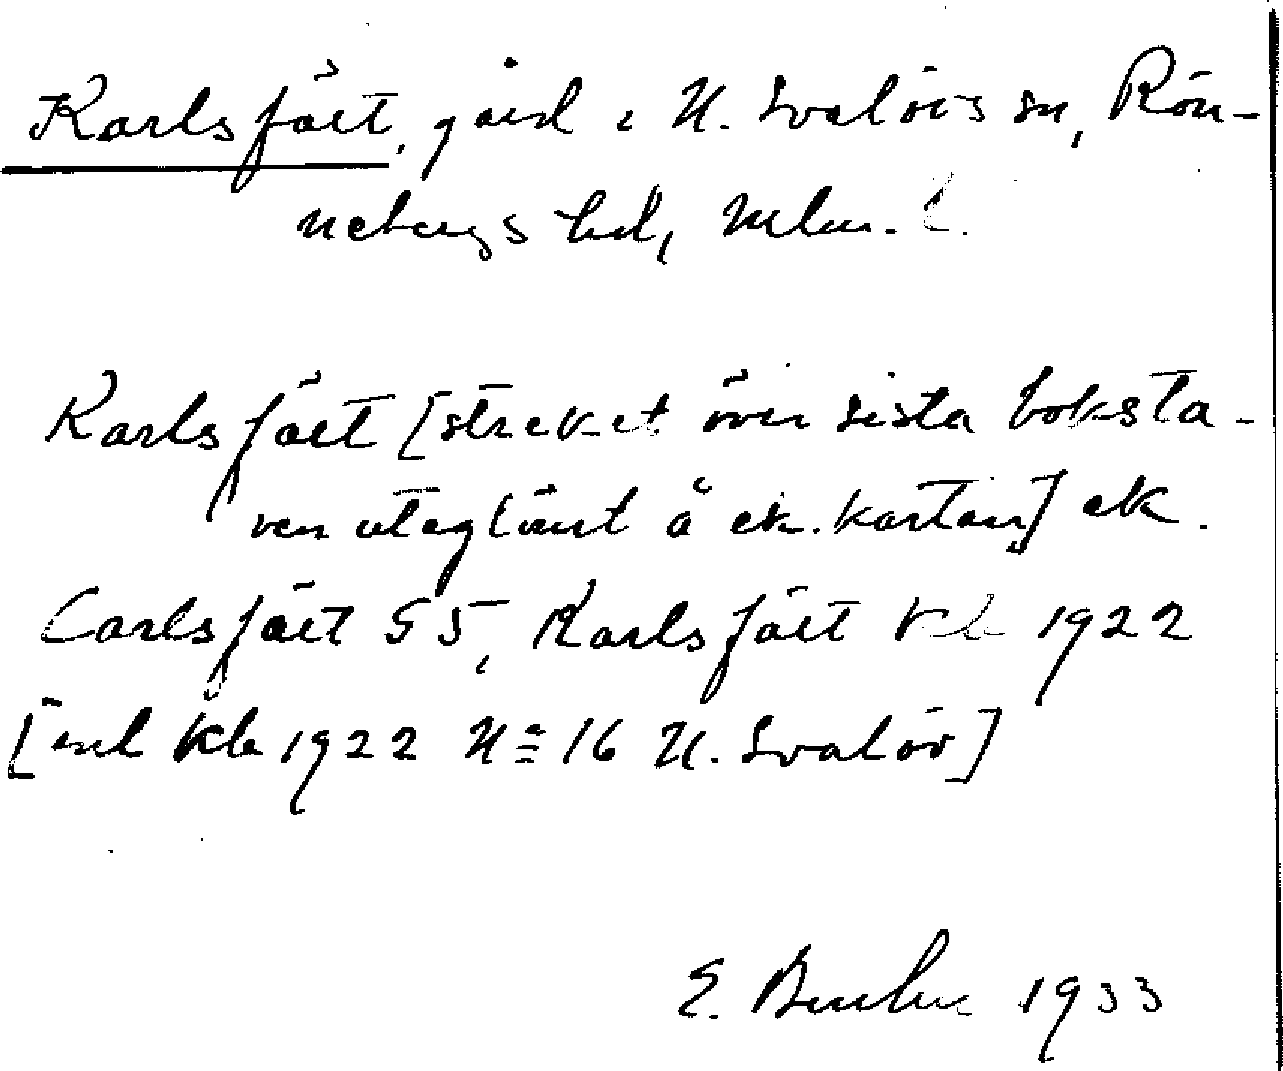 Karlsfält, gård i N. Svalövs sn, Rön-
nebergs hd, Mlm. l.
Karlsfält [strecket över sista boksta-
ven uteglömt å ek. kartan] ek.
Carlsfält 55, Karlsfält kb 1922
[enl kb 1922 N:= 16 N. Svalöv]
E. 1933